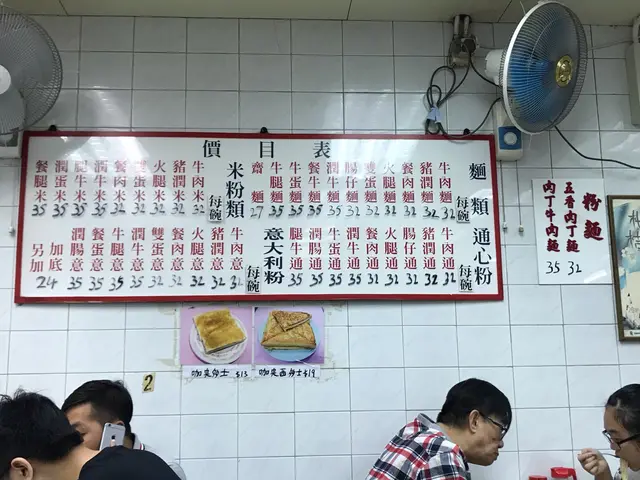 價目表
麵類 每碗
牛肉麵 32
豬潤麵 32
餐肉麵 32
火腿麵 32
雙蛋麵 32
腸仔麵 32
潤牛麵 35
餐牛麵 35
牛蛋麵 35
牛腿麵 35
齋麵 27
米粉類 每碗
牛肉米 32
豬潤米 32
火腿米 32
雙蛋米 32
餐肉米 32
潤牛米 35
腿牛米 35
潤蛋米 35
餐腿米 35
通心粉 每碗
牛肉通 32
豬潤通 32
腸仔通 32
火腿通 32
餐肉通 32
牛潤通 35
牛蛋通 35
潤腸通 35
腿牛通 35
意大利粉 每碗
牛肉意 32
豬潤意 32
火腿意 32
餐肉意 32
雙蛋意 32
牛潤意 35
牛腿意 35
餐蛋意 35
潤腸意 35
加底
另加 24
粉麵
五香肉丁麵 32
肉丁牛肉麵 35
咖央多士 $13
咖央西多士 $19
2